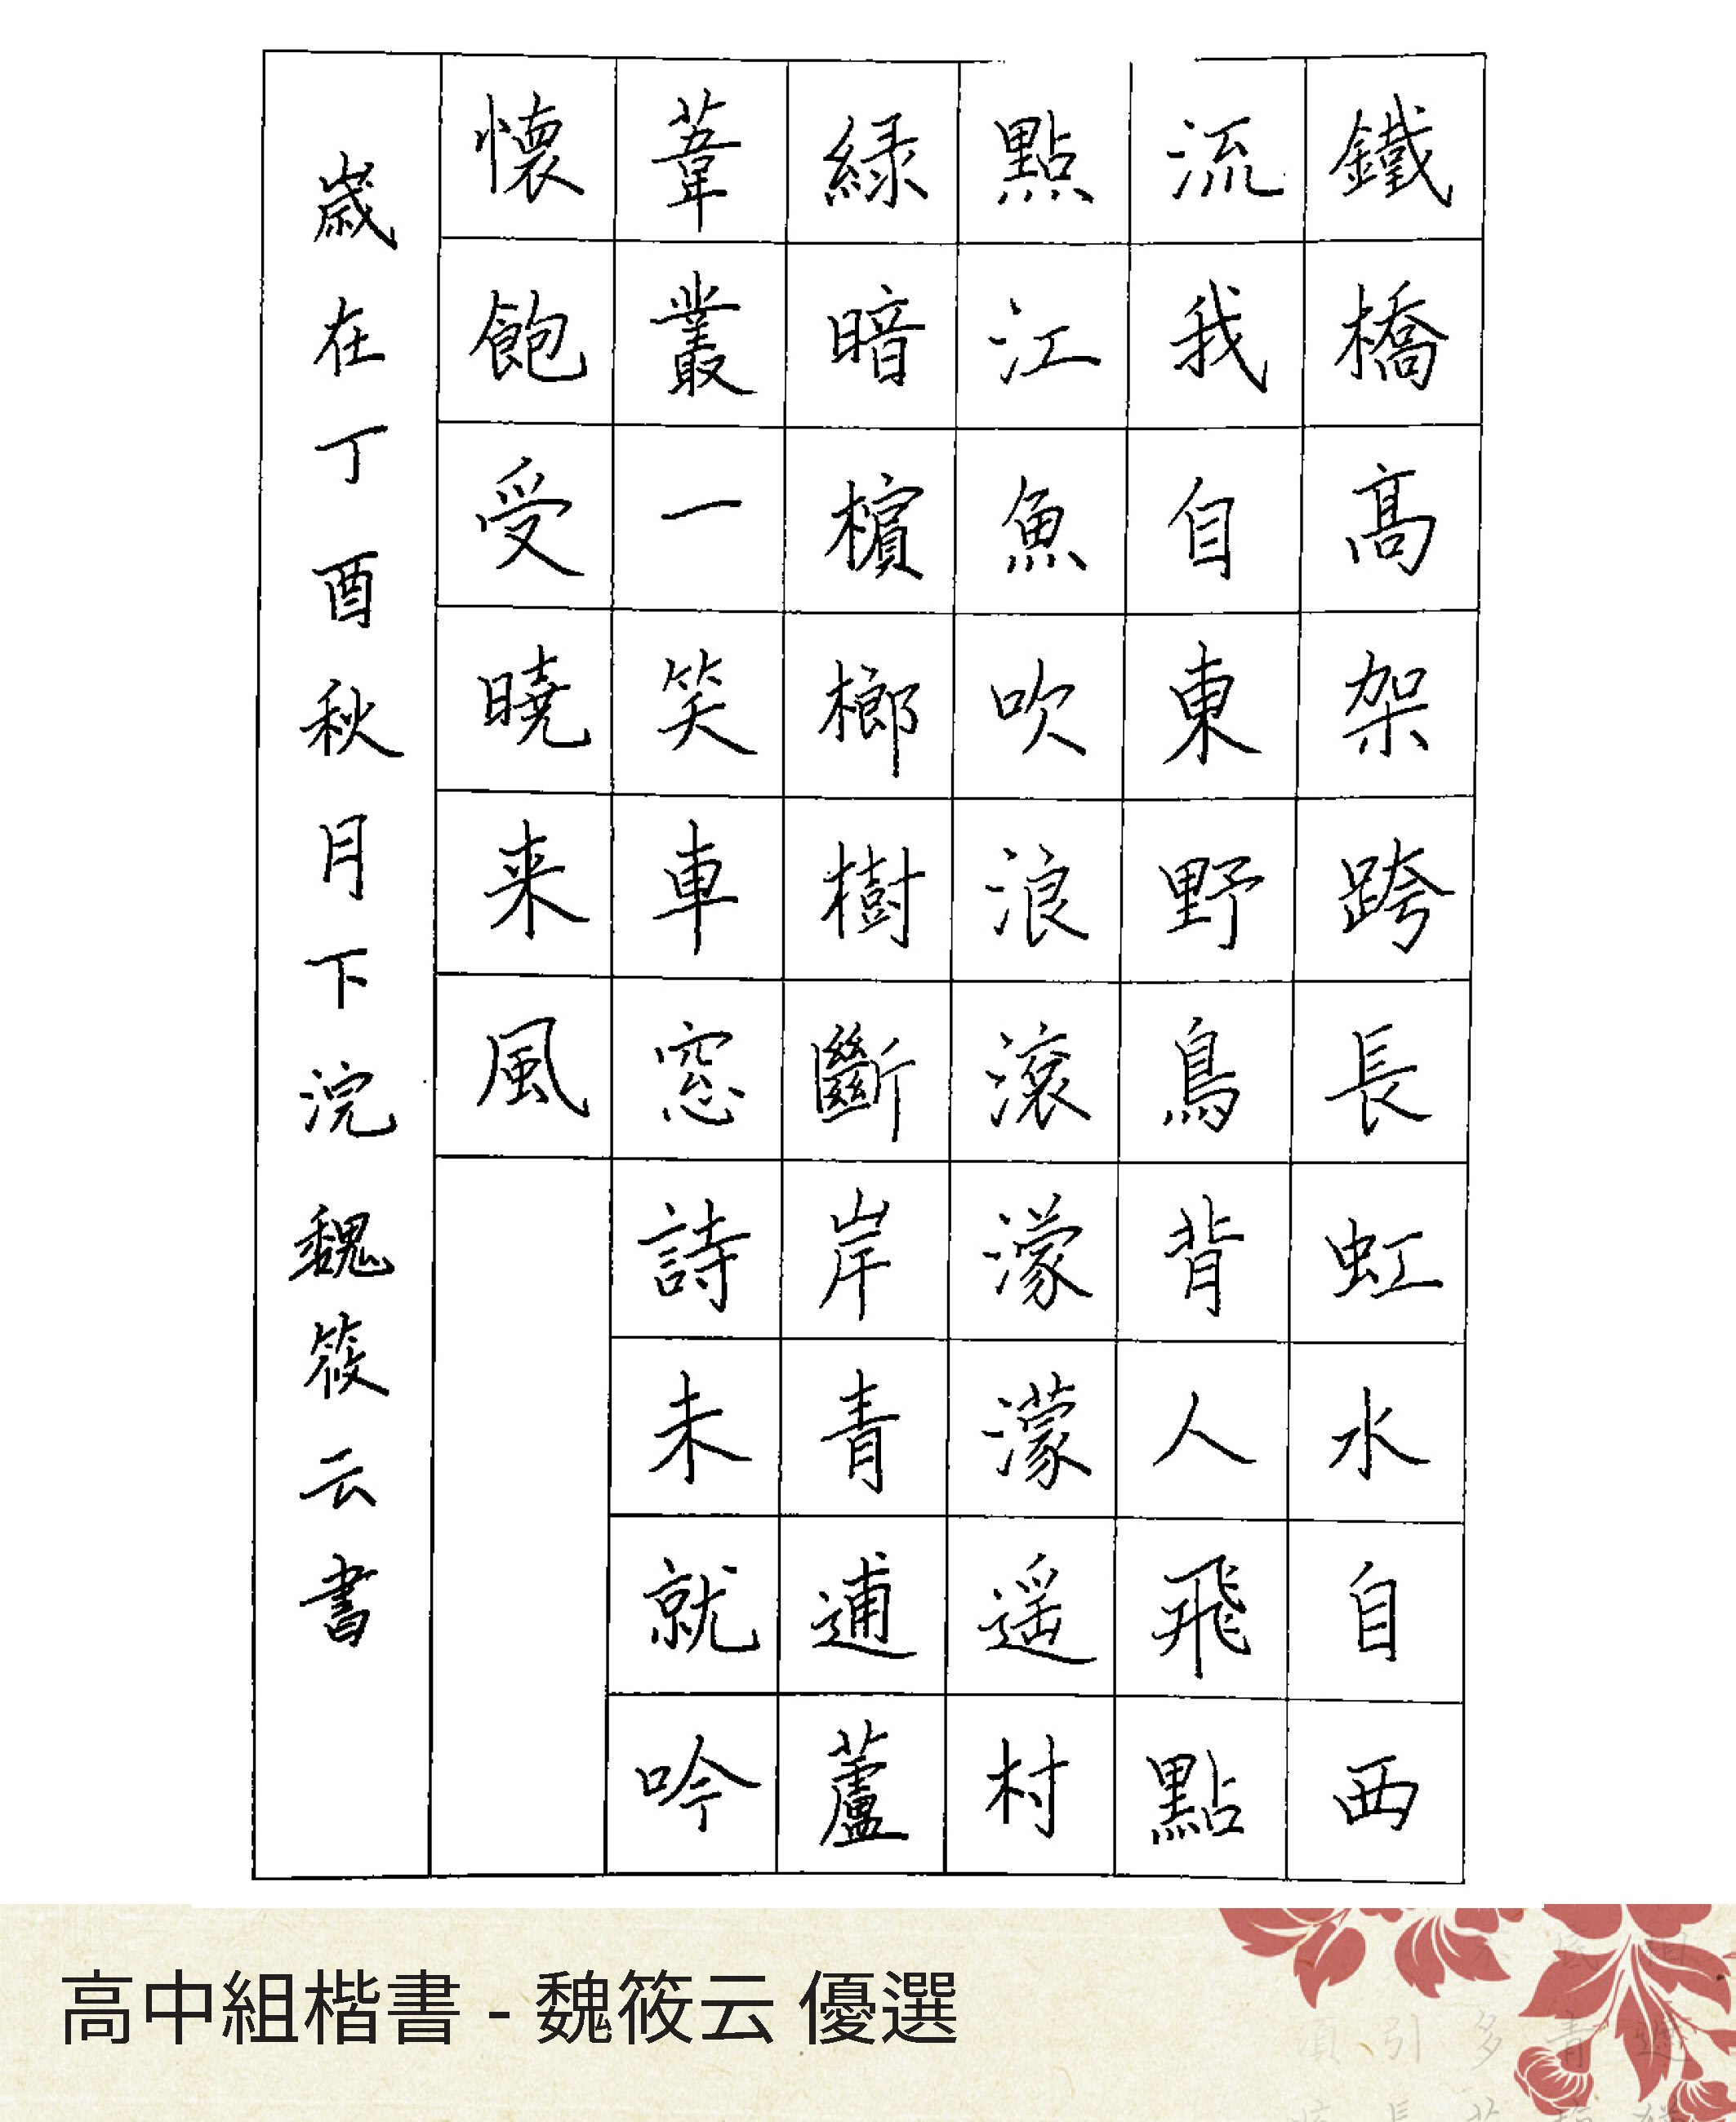 鐵橋高架跨長虹水自西
流我自東野鳥背人飛點
點江魚吹浪滾濛濛遥村
緑暗檳榔樹斷岸青逋蘆
葦叢一笑車窓詩未就吟
懷飽受曉来風
歲在丁酉秋月下浣魏筱云書
高中組楷書 - 魏筱云 優選